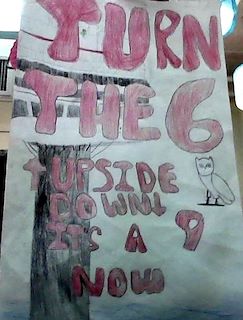 TURN
THE 6
↑UPSIDE
DOWN↓
ITS A 9
NOW